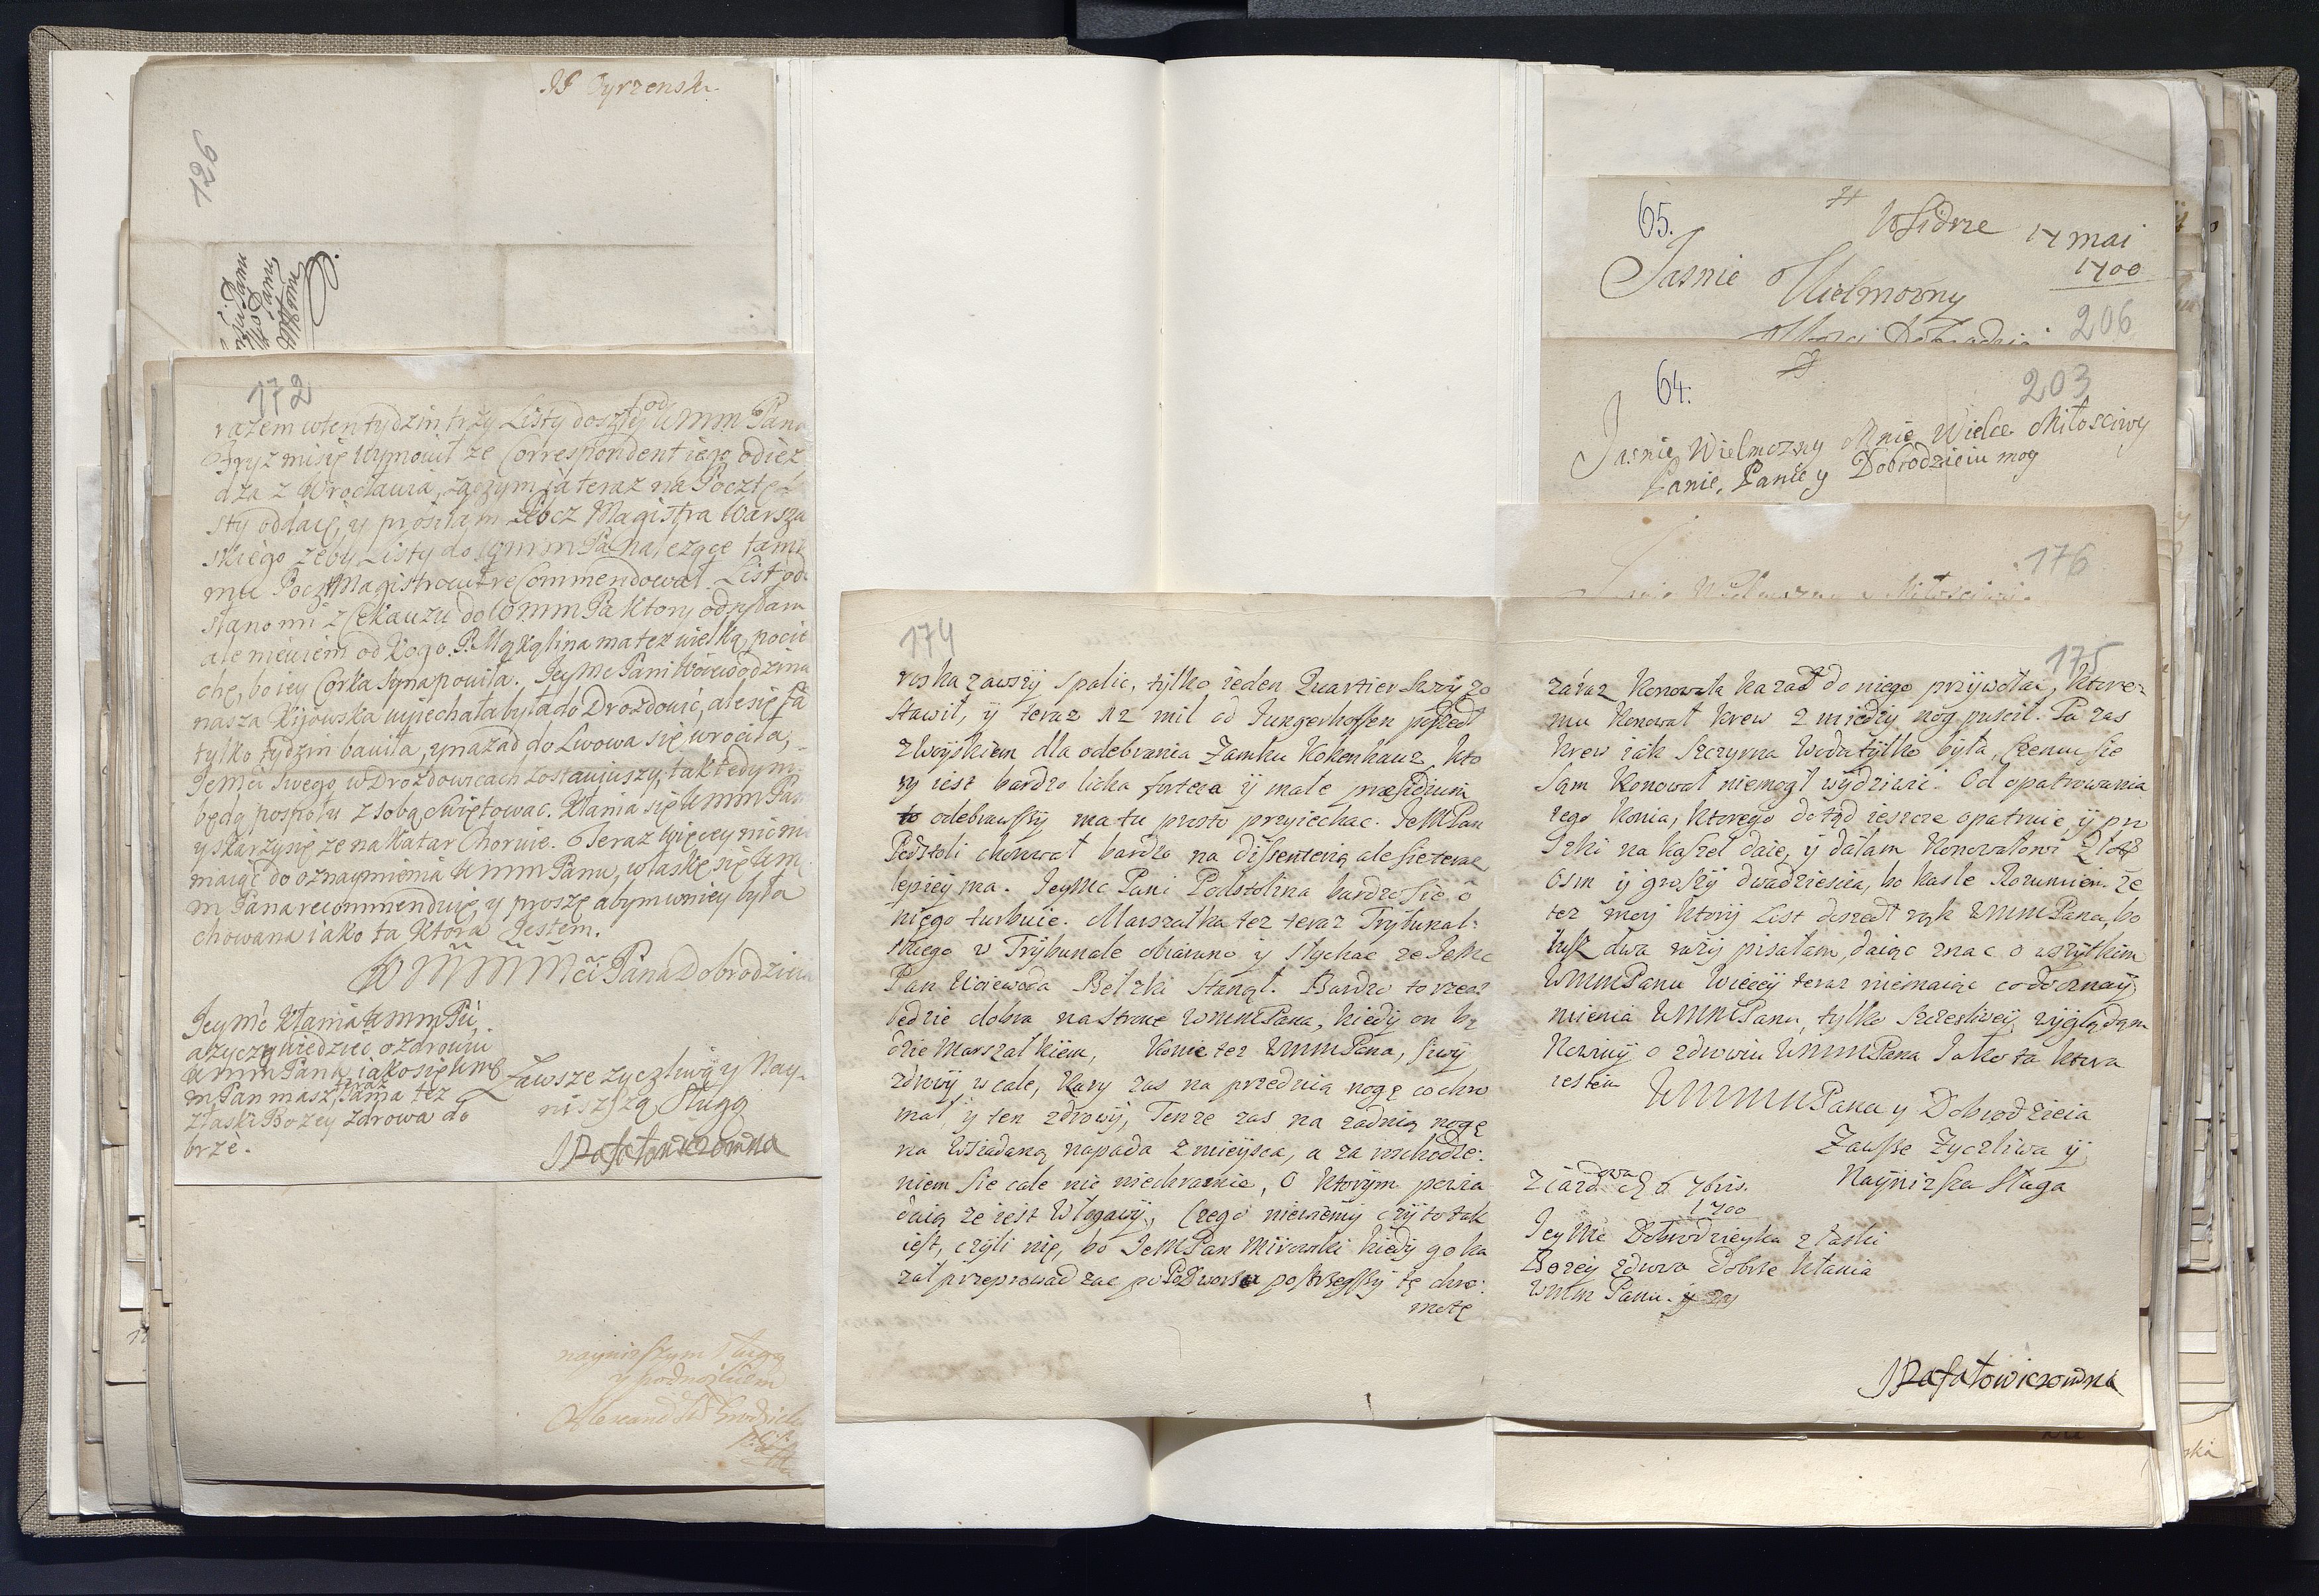 JP Cyrzenski
126
172
razem w ten tydzin trzy Listy doszły od WMM Pana
dza z Wrocławia, zaczym ia teraz na Pocztę
sty oddaię, y prosiłam Pocz Magistra Warsza
skiego zeby Listy do WMM Pa nalezące tam
mu PoczMagistrowi recommendował. List od
słano mi z do WMM Pa ktory odsyłam
ale niewiem od kogo. P. Mąkolina ma tez wielką pocie
chę, bo iey Corka Syna powiła. Jey Mc Pani Woiewodzina
nasza Kijowska wyiechała była do Drozdowic, ale się ta
tylko tydzin bawiła, y nazad do Lwowa się wrociła,
JeMci swego w Drozdowicach zostawiwszy, tak tedy m
będą pospołu z sobą Swiętowac. Kłania się WMM Pan
y skarzy się ze na Katar Choruie. Teraz więcey nic ni
maiąc do oznaymienia WMM Panu, w łaskę się WM
M Pana recommenduię y proszę abym w niey była
chowana iako ta ktora Jestem.
WMMMci Pana Dobrodzieia
Jey Mc kłania WMM Pu,
a zyczy wiedziec o zdrowiu
WMM Pana, iako się WM
M Pan masz, teraz sama tez
z łaski Bozey zdrowa do
brze.
Zawsze zyczliwą y Nay-
niszszą Sługą
JRafałowiczowna
nayniszszym sługą
y podnoszkiem
174
roskazawszy spalic, tylko ieden Quartier Swoy zo
stawił, y teraz 12 mil od Jungerhoffen poszedł
z Woyskiem dla odebrania Zamku Kokenhauz, kto
ry iest bardzo licha forteca y małe praesidium
to odebrawszy ma tu prosto przyiechac. JeMPan
Podstoli chorował bardzo na disenterią ale sie teraz
lepiey ma. JeyMc Pani Podstolina bardzo sie o
niego turbuie. Marszałka tez teraz Trybunal:
skiego w Trybunale obiarano y słychac ze JeMc
Pan Woiewoda Bełzki stanął. Bardzo to rzecz
będzie dobra na stronę WMMPana, kiedy on bę
dzie Marszałkiem, Konie tez WMMPana, siwy
zdrowy wcale, Kary zas na przednią nogę co chro
mał, y ten zdrowy, Tenze zas na zadnią nogę
na Wsiadaną napada z mieysca, a za rozchodze:
niem sie cale nic niechramie, o ktorym powia
daią ze iest Włogawy, czego niewiemy czy to tak
iest, czyli nie, bo JeMPan Mirowski kiedy go ka
zał przeprowadzac po Podworzu postrzegszy tę chro:
motę
65.
W Sidrze 17 mai
1700
Jasnie Wielmozny
206
64.
203
Jasnie Wielmozny Mnie Wielce Miłosciwy
Panie, Panie y Dobrodzieiu moy
176
175
zaraz Konowała kazał do niego przywołac, ktore-
mu Konował krew z miedzy nog puscił. Ta zas
krew iak szczyrna Woda tylko była, czemu sie
sam Konował niemogł wydziwic. Od opatrowania
tego Konia, ktorego dotąd ieszcze opatruie, y pro
szki na kaszel daie, y dałam Konowałowi Zło
Osm y groszy dwadziescia, bo kaszle Rozumiem ze
tez moy ktory List doszedł rąk WMMPana, bo
iusz dwa razy pisałam, daiąc znac o wszytkim
WMMPanu Więcey teraz niemaiąc co do oznay
mienia WMMPanu, tylko szczesliwey wyglądam
Nowiny o zdrowiu WMMPana Jako ta ktora
iestem
WMMMPana y Dobrodzieia
Zawsze Zyczliwa y
Naynizsza Sługa
Z Jazdowa d 6 7bris.
1700
Jey Mc Dobrodzieyka z łaski
Bozey zdrowa dobrze kłania
WMM Panu.
JRafałowiczowna